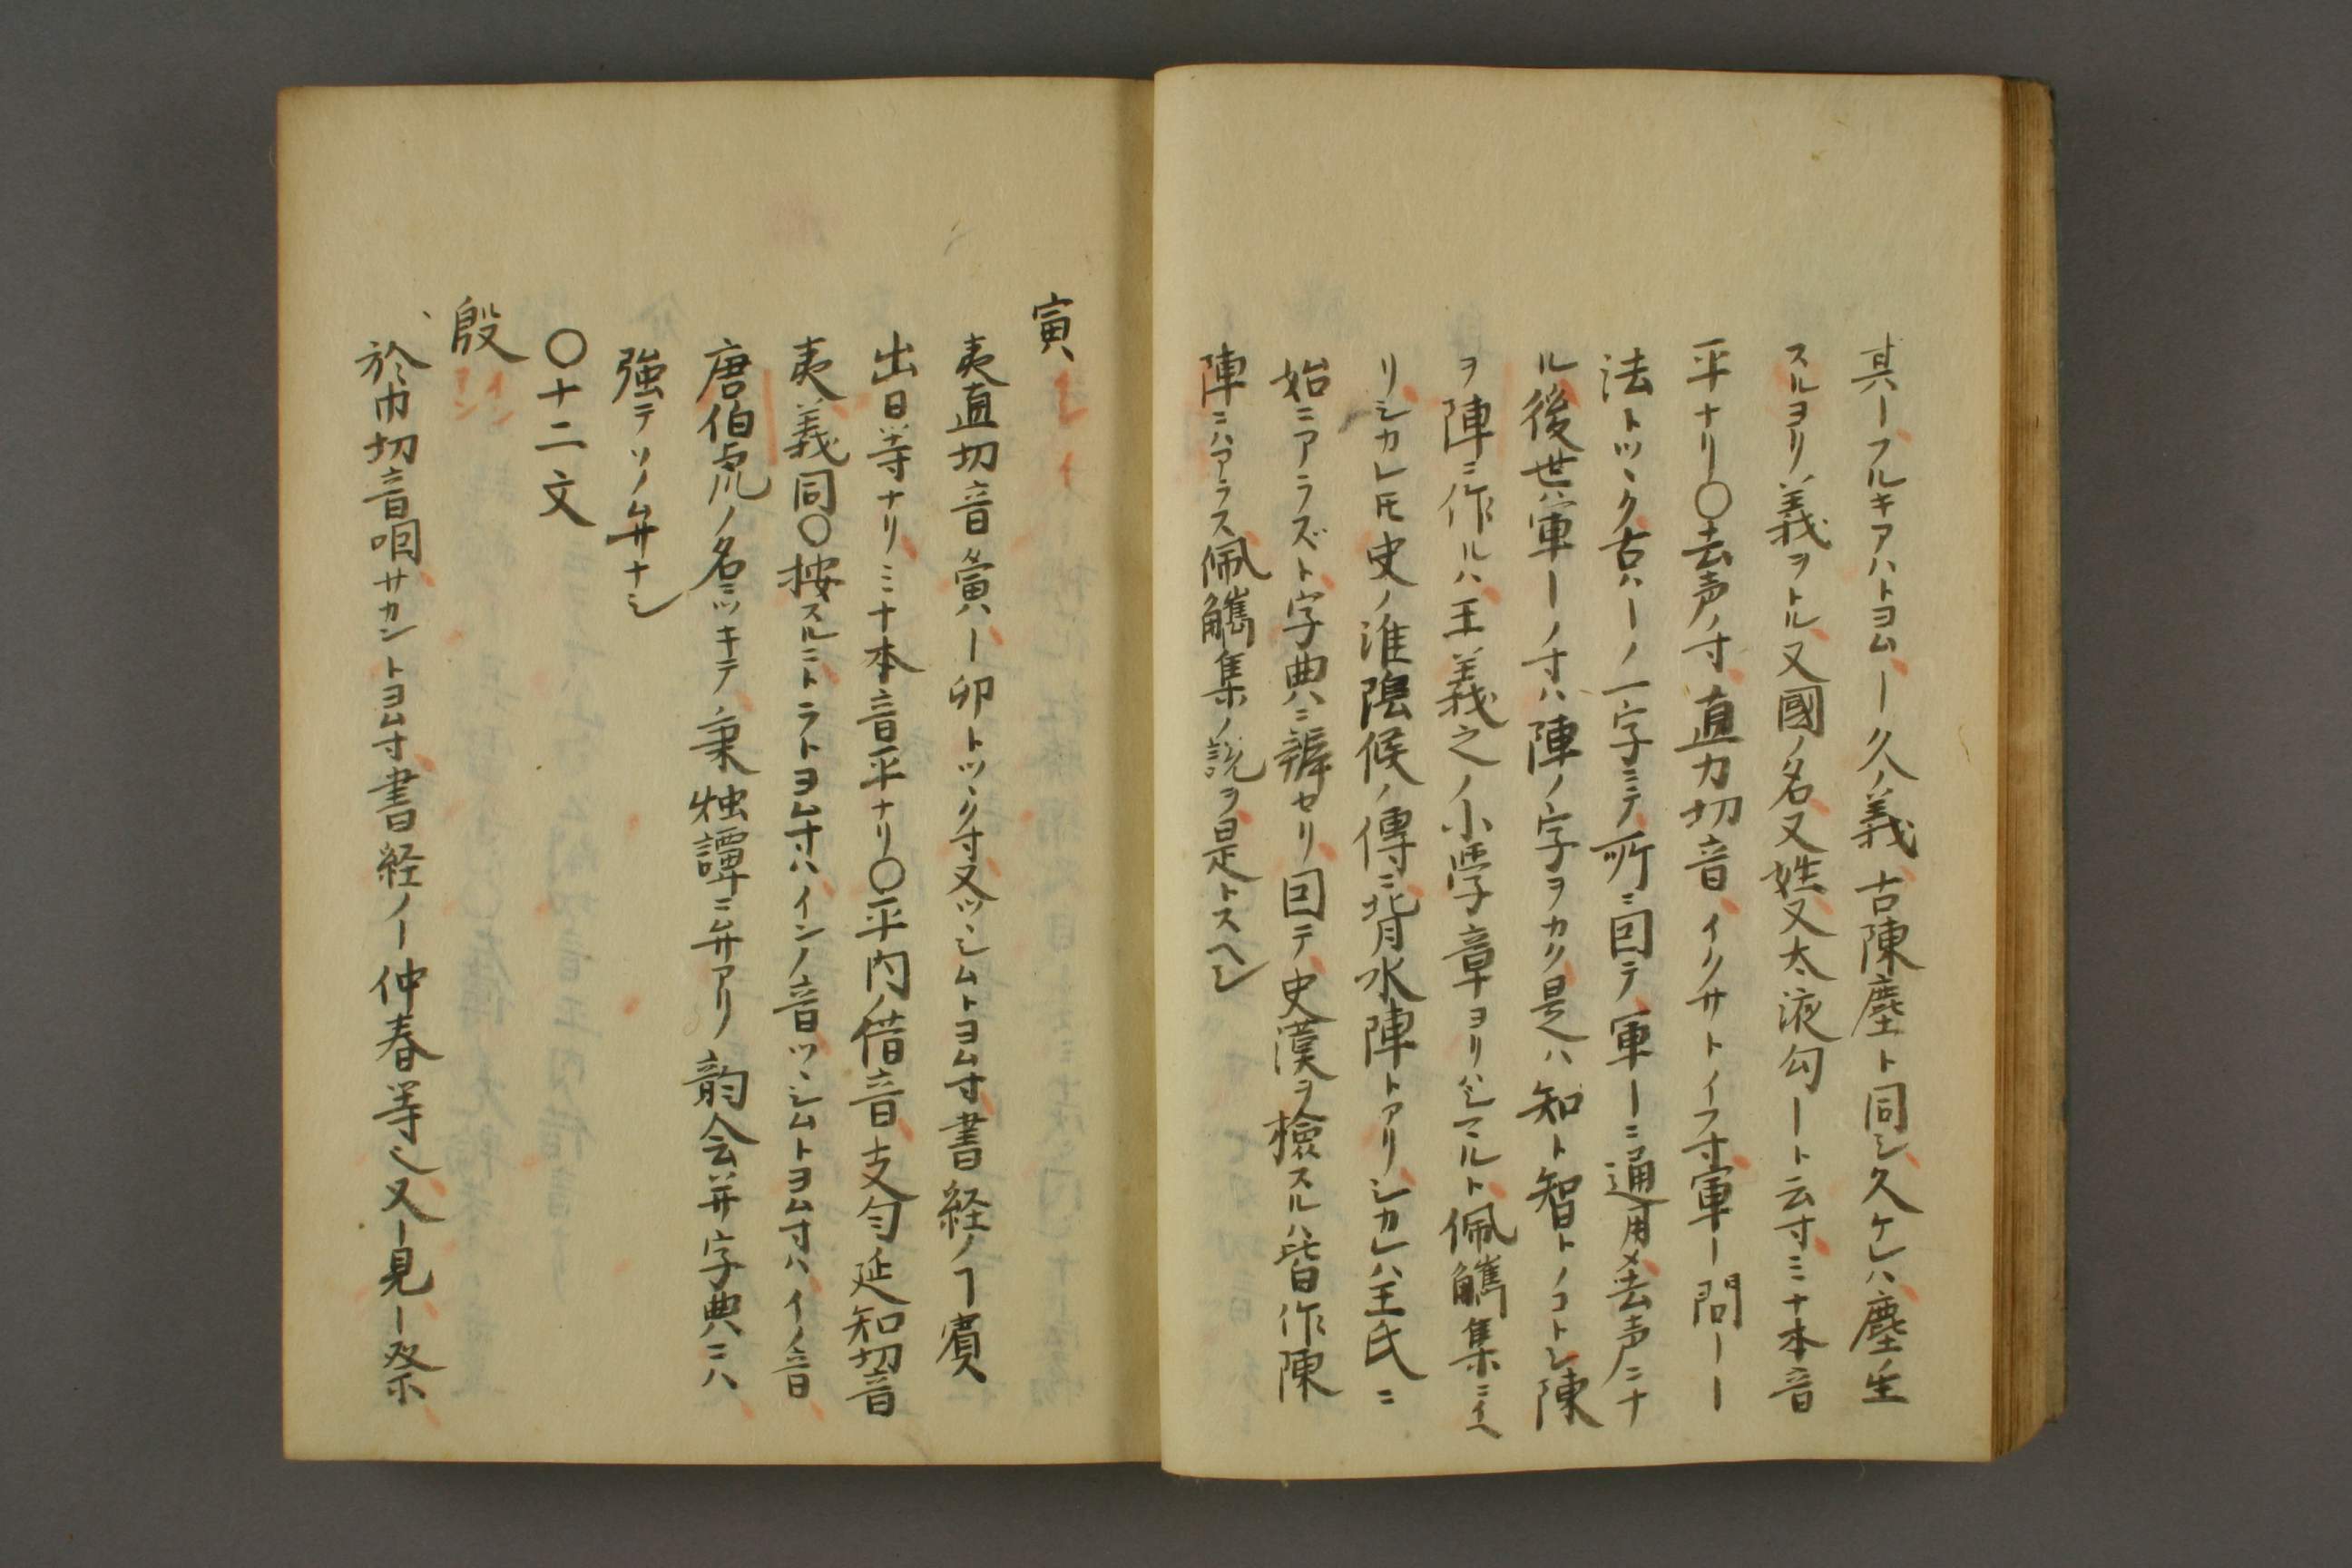 其ーフルキアハトヨムー久ノ義古陳塵ト同シ久ケレハ塵生
スルヨリ義ヲトル又國ノ名又姓又太液勾ート云寸ミナ本音
平ナリ〇去声ノ寸直刀切音イクサトイフ寸軍ー問ーー
法トツヽク古ハーノ一字ミテ所ニ因テ軍ーニ通用メ去声ニナ
ル後世軍ーノ寸ハ陣ノ字ヲカク是ハ知ト智トノコトシ陳
ヲ陣ニ作ルハ王羲之ノ小學章ヨリハシマルト佩觿集ニイヘ
リシカレ𪜈史ノ淮陰候ノ傳ニ背水陣トアリシカレハ王氏ニ
始ニアラズト字典ニ辨セリ因テ史漢ヲ檢スルハ皆作陳
陣ニハアラス佩觿集ノ説ヲ是トスヘシ
寅 イン イ
夷直切音夤寅ハー卯トツヽク寸又ツヽシムトヨム寸書経ノヿ賓
出日等ナリミナ本音平ナリ〇平内ノ借音支勻延知切音
夷義同〇按スルニトラトヨム寸ハインノ音ツヽシムトヨム寸ハイノ音
唐伯虎ノ名ニツキテ秉燭譚ニ弁アリ韵会并字典ニハ
強テソノ弁ナシ
〇十二文
殷 イン アン
於巾切音咽サカントヨム寸書経ノー仲春等也又ー見ー祭